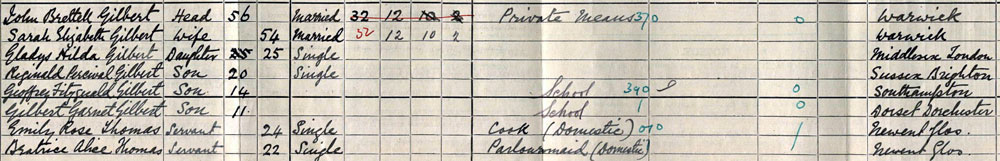 John Brettell Gilbert Head 56 Married 32 12 10 2 Private Means 370 0 Warwick
Sarah Elizabeth Gilbert Wife 54 Married 32 12 10 2 Warwick
Gladys Hilda Gilbert Daughter 25 25 Single Middlesex London
Reginald Percival Gilbert Son 20 Single Sussex Brighton
Geoffrey Fitzgerald Gilbert Son 14 School 390 0 Southampton
Gilbert Garnet Gilbert Son 11 School 1 0 Dorset Dorchester
Emily Rose Thomas Servant 24 Single Cook (Domestic) 010 1 Newent Glos.
Beatrice Alice Thomas Servant 22 Single Parlourmaid (Domestic) Newent Glos.